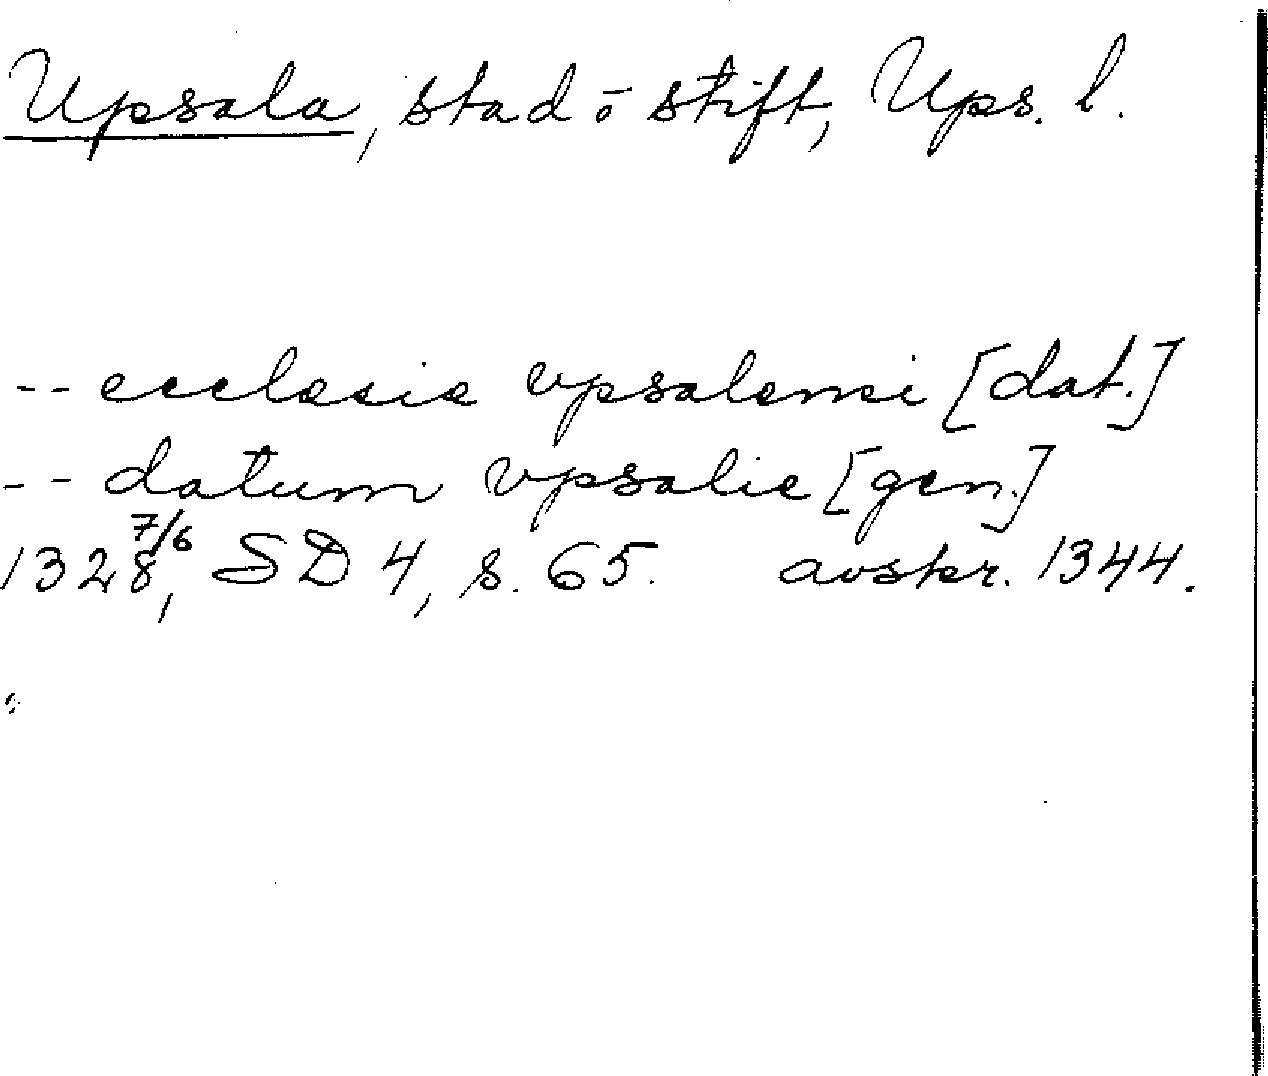 Upsala, stad o stift, Ups. l.
-- ecclesie vpsalensi [dat.]
-- datum vpsalie [gen.]
1328 7/6, SD 4, s. 65. avskr. 1344.